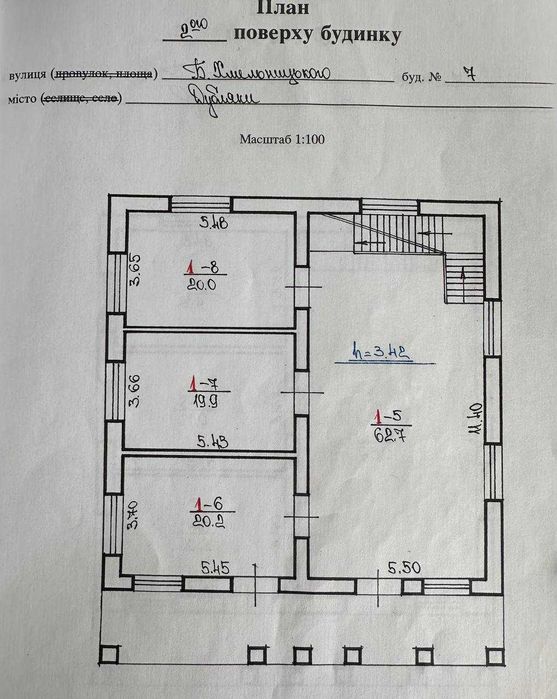 План
2ого поверху будинку
вулиця (провулок, площа) Б. Хмельницького буд. № 7
місто (селище, село) Дубляни
Масштаб 1:100
5.48
3.65
1-8
20.0
h=3.42
3.66
1-7
19.9
5.43
1-5
62.7
11.40
3.70
1-6
20.2
5.45
5.50